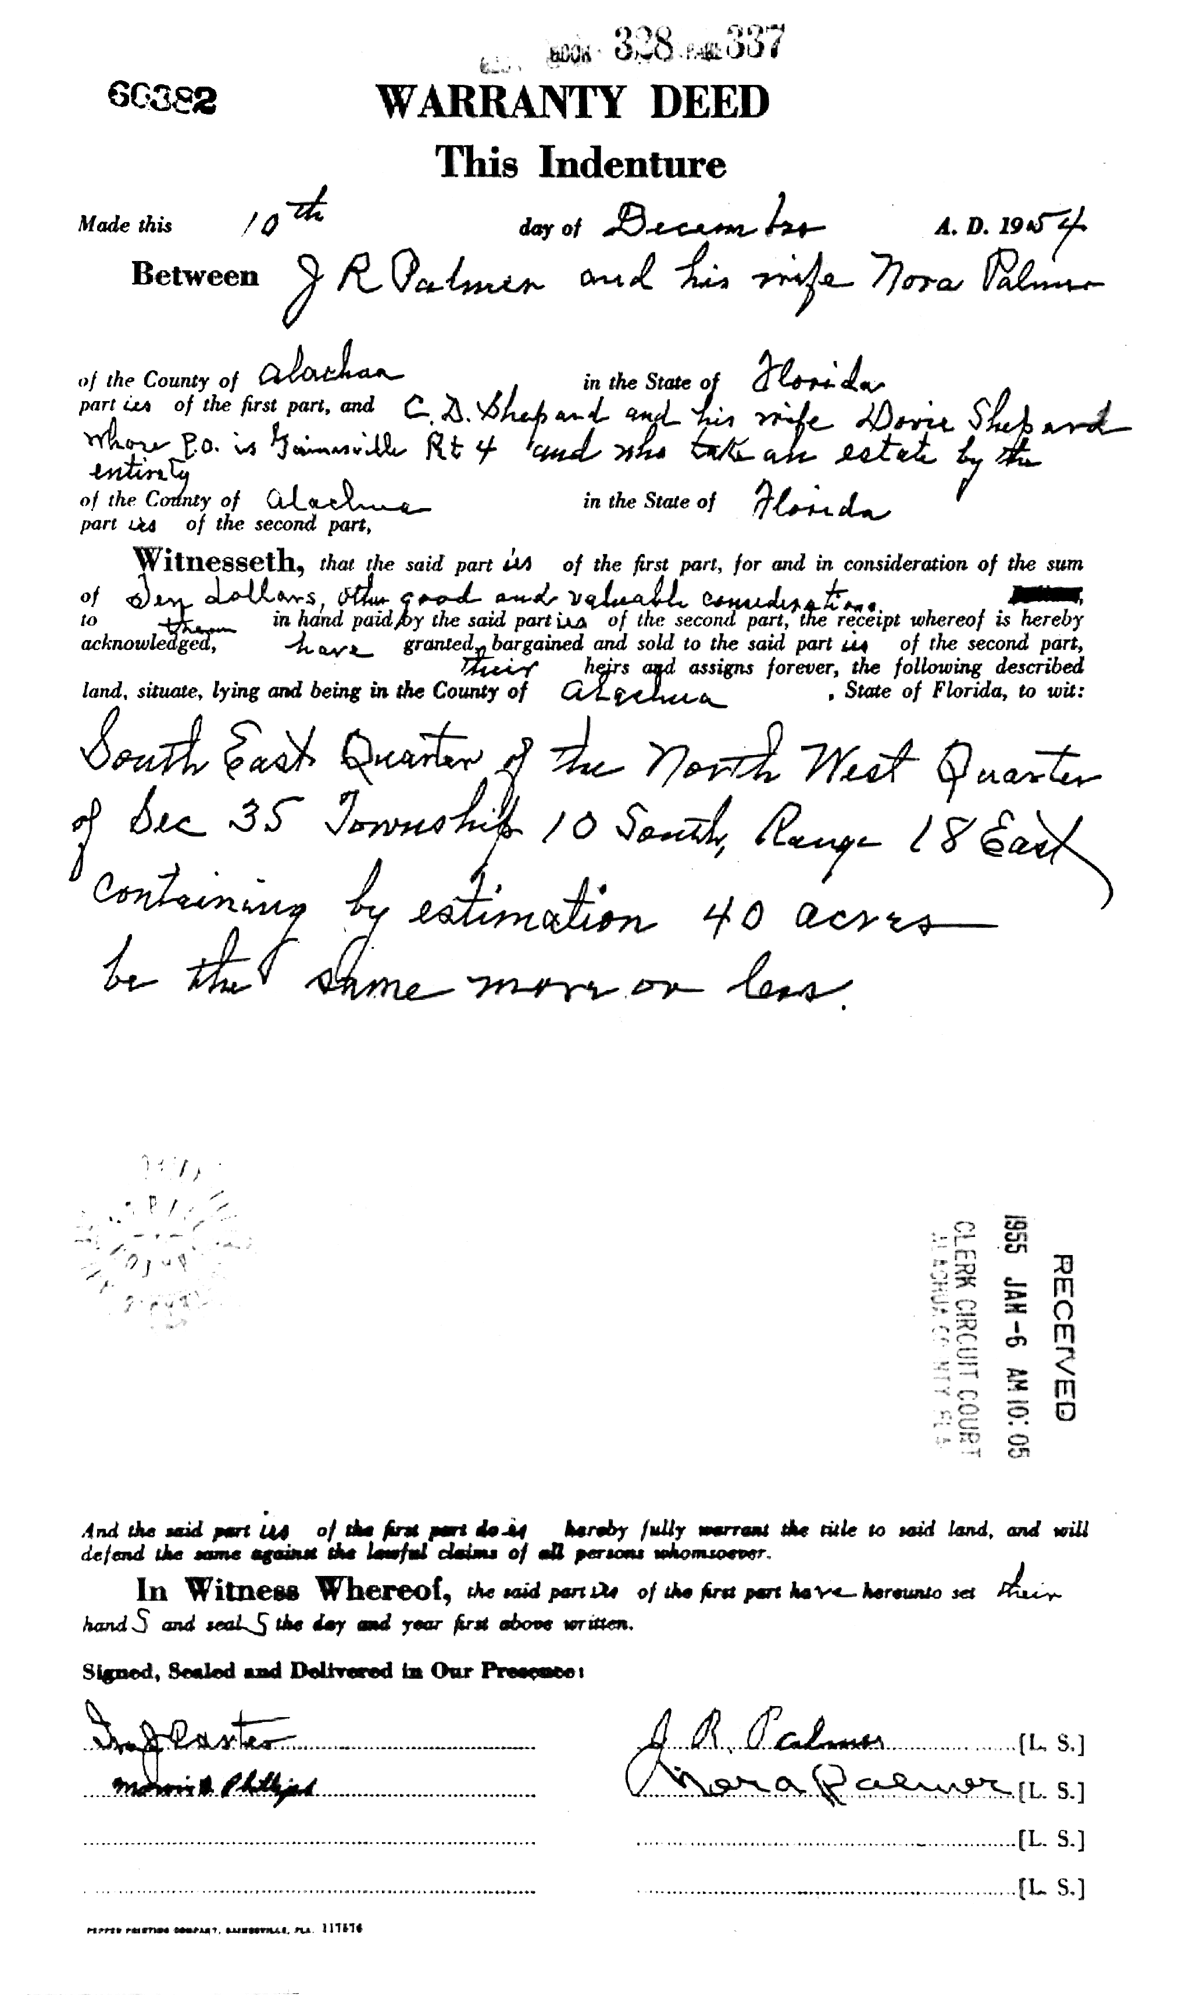 BOOK 328 PAGE 337
60382
WARRANTY DEED
This Indenture
Made this 10th day of December A. D. 1954
Between J R Palmer and his wife Nora Palmer
of the County of Alachua in the State of Florida
part ies of the first part, and C. D. Shepard and his wife Dovie Shepard
whose P.O. is Gainesville Rt 4 and who take an estate by the
entirety
of the County of Alachua in the State of Florida
part ies of the second part,
Witnesseth, that the said part ies of the first part, for and in consideration of the sum
of Ten dollars, other good and valuable considerations
to them in hand paid by the said part ies of the second part, the receipt whereof is hereby
acknowledged, have granted, bargained and sold to the said part ies of the second part,
their heirs and assigns forever, the following described
land, situate, lying and being in the County of Alachua , State of Florida, to wit:
South East Quarter of the North West Quarter
of Sec 35 Township 10 South, Range 18 East
containing by estimation 40 acres
be the same more or less.
RECEIVED
1955 JAN -6 AM 10:05
CLERK CIRCUIT COURT
ALACHUA COUNTY FLA
And the said part ies of the first part do hereby fully warrant the title to said land, and will
defend the same against the lawful claims of all persons whomsoever.
In Witness Whereof, the said part ies of the first part have hereunto set their
hand S and seal S the day and year first above written.
Signed, Sealed and Delivered in Our Presence:
Ira J Carter J. R. Palmer [L. S.]
Phillips Nora Palmer [L. S.]
[L. S.]
[L. S.]
PEPPER PRINTING COMPANY, GAINESVILLE, FLA. 117576